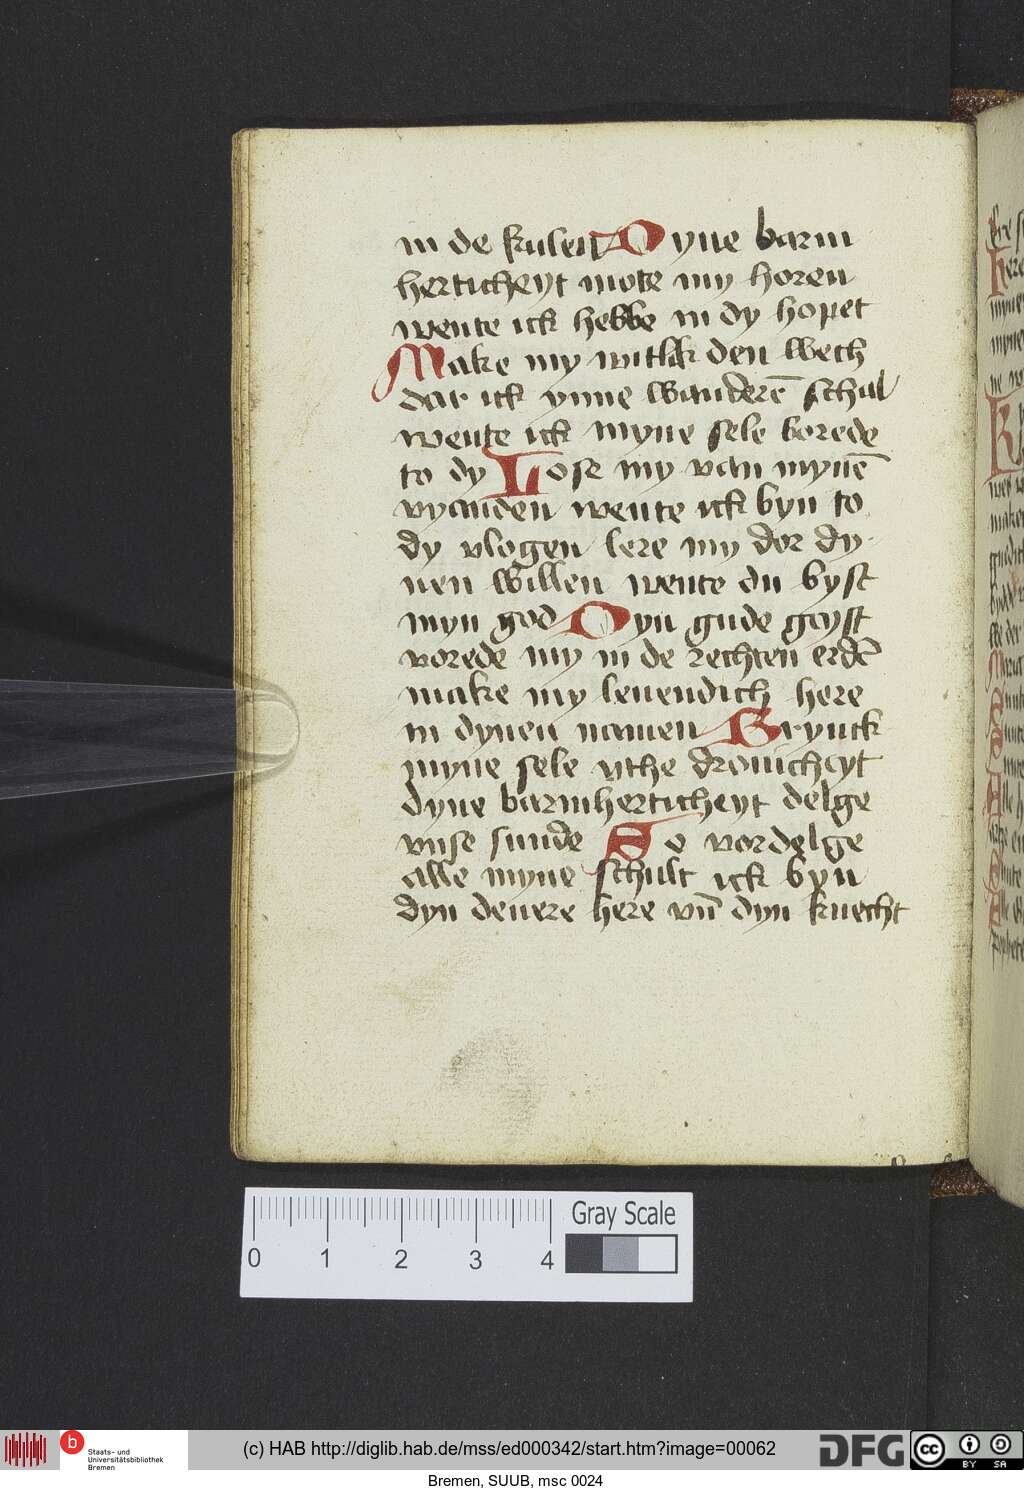 in de kulen Dyne barm
herticheyt mote my horen
wente ick hebbe in dy hopet
Make my witlik den wech
dar ick ynne wanderē schal
wente ick myne sele berede
to dy Lose my van mynē
vyanden wente ick byn to
dy vlogen lere my dor dy-
nen willen wente du byst
myn god Dyn gude geyst
vorede my in de rechten erdē
make my leuendich here
in dynen namen Brynck
myne sele vthe drouicheyt
dyne barmherticheyt delge
vnse sunde So vordelge
alle myne schult ick byn
dyn denere here vn̄ dyn knecht
0 1 2 3 4
Gray Scale
b
Staats- und
Universitätsbibliothek
Bremen
(c) HAB http://diglib.hab.de/mss/ed000342/start.htm?image=00062
DFG
cc BY SA
Bremen, SUUB, msc 0024